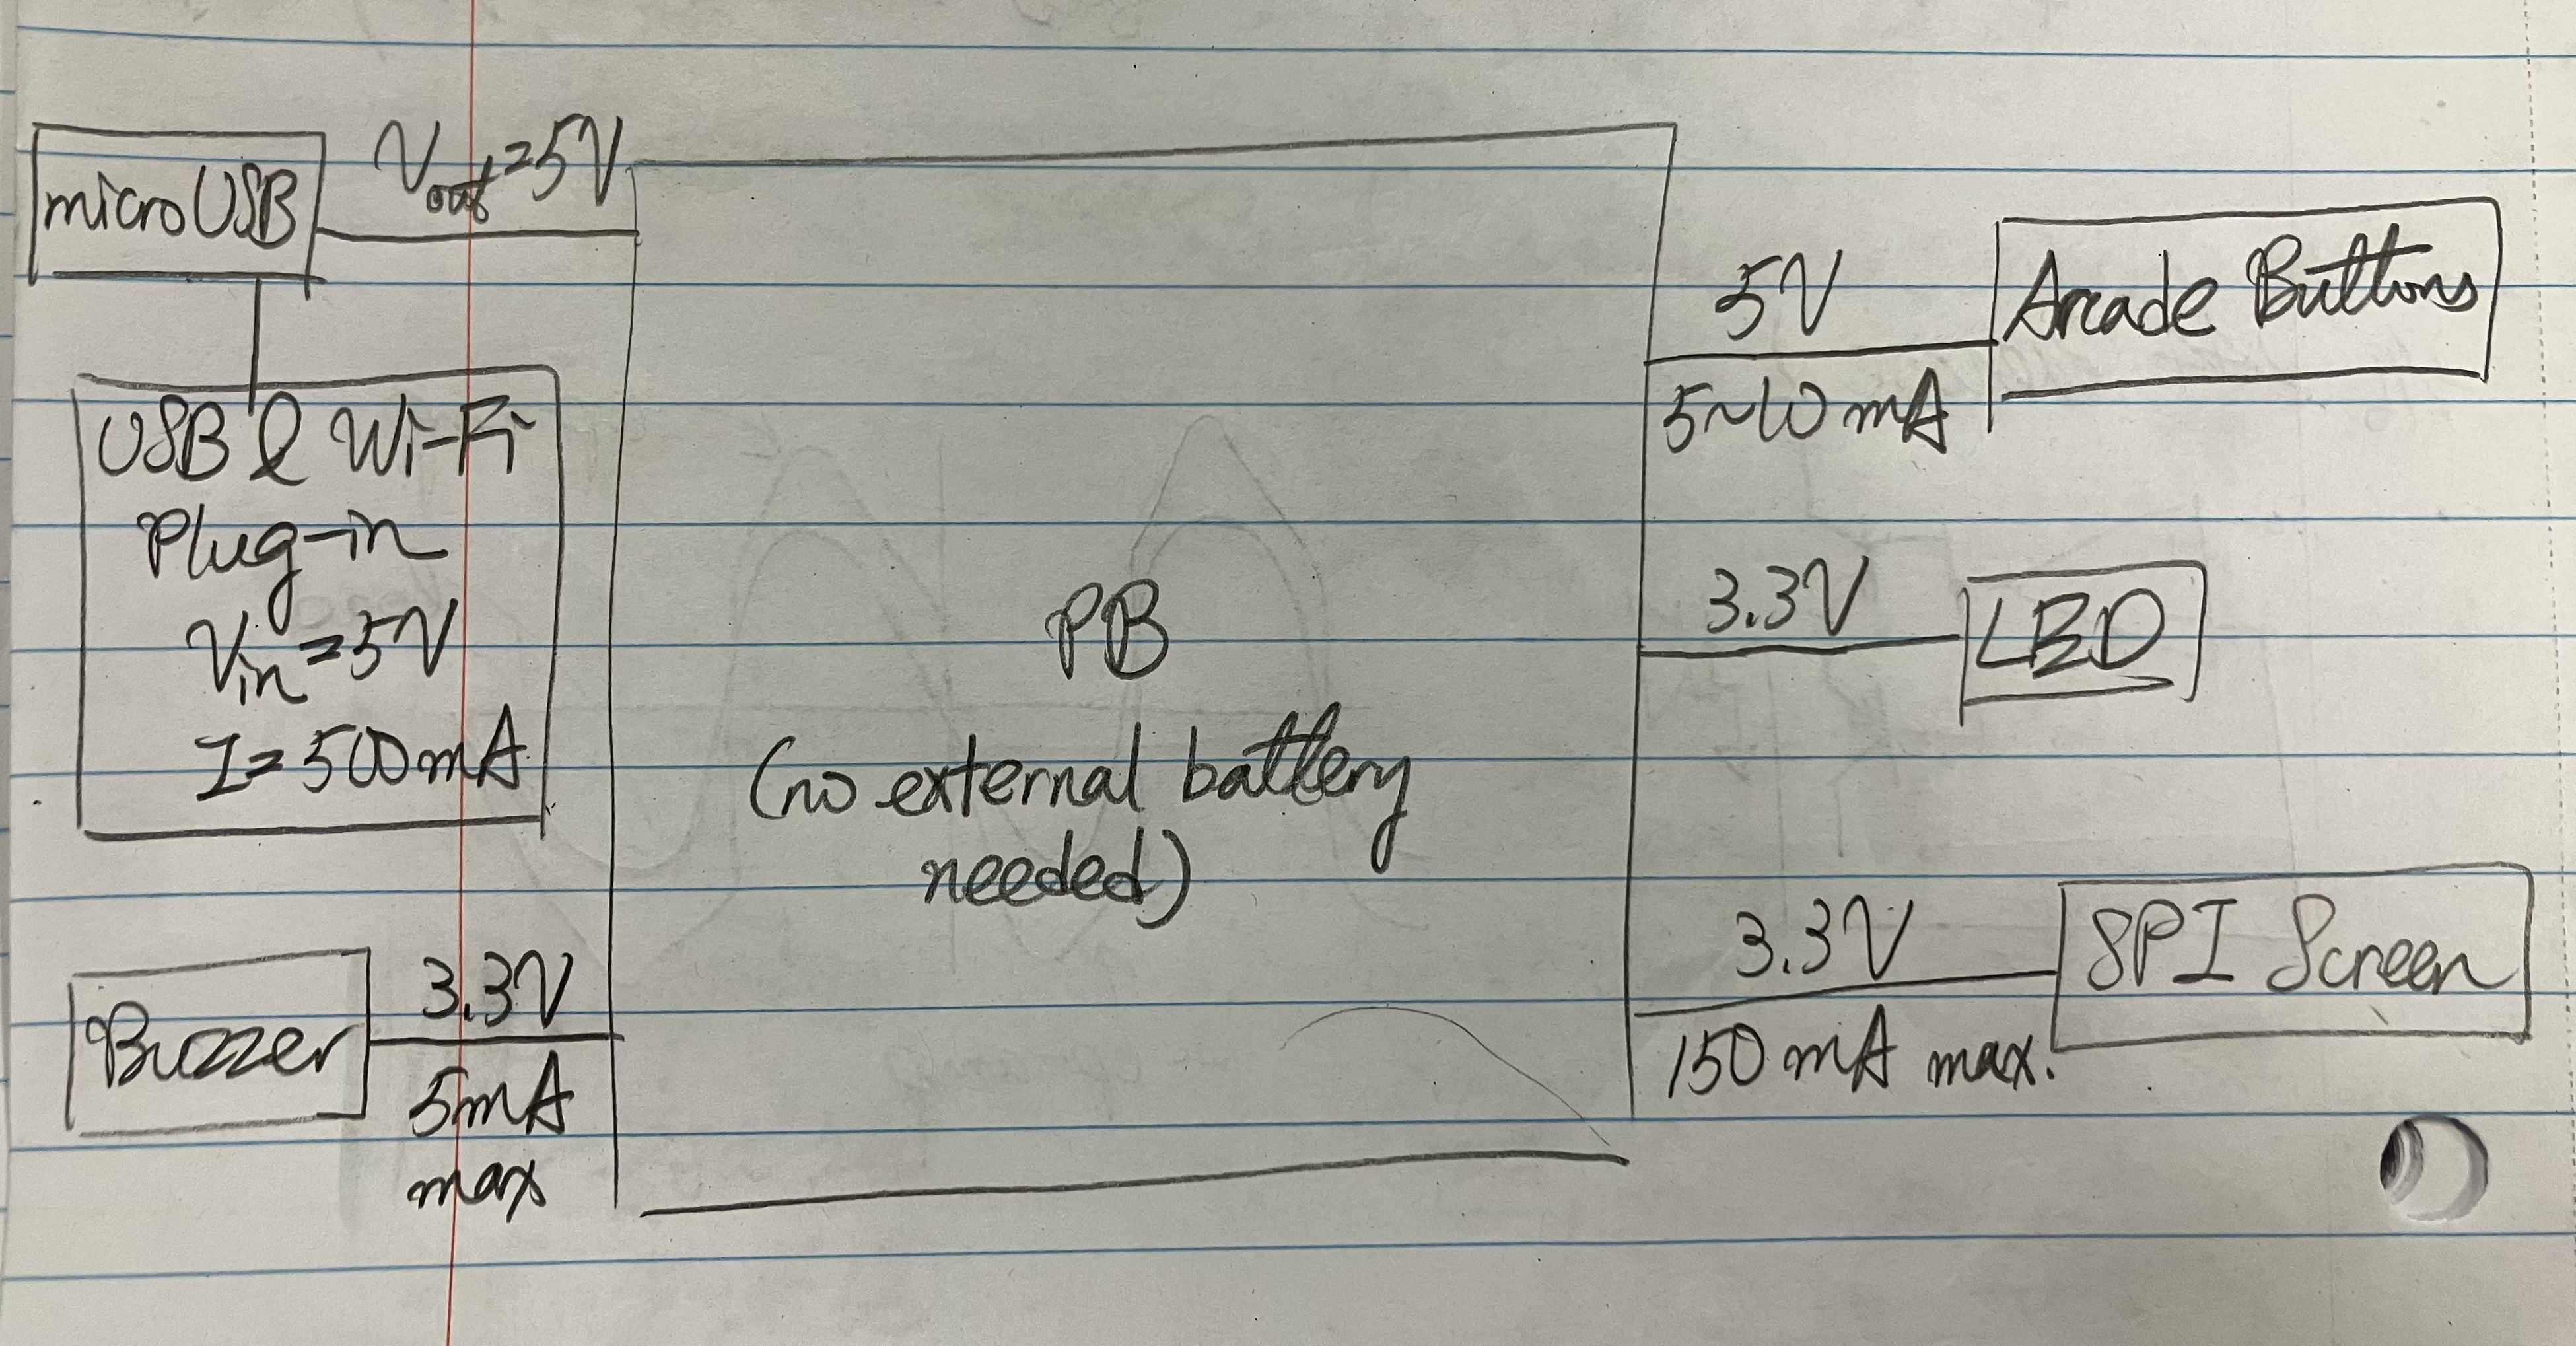 micro USB
Vout=5V
USB & Wi-Fi
Plug-in
Vin=5V
I=500mA
Buzzer
3.3V
5mA
max
PB
(no external battery
needed)
5V
5~10 mA
Arcade Buttons
3.3V
LED
3.3V
150 mA max.
SPI Screen